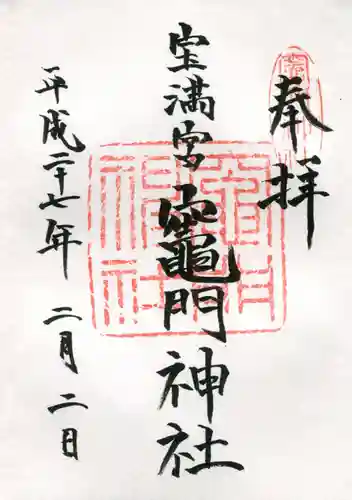 奉拝
宝満宮
竈門神社
平成二十七年 二月 二日